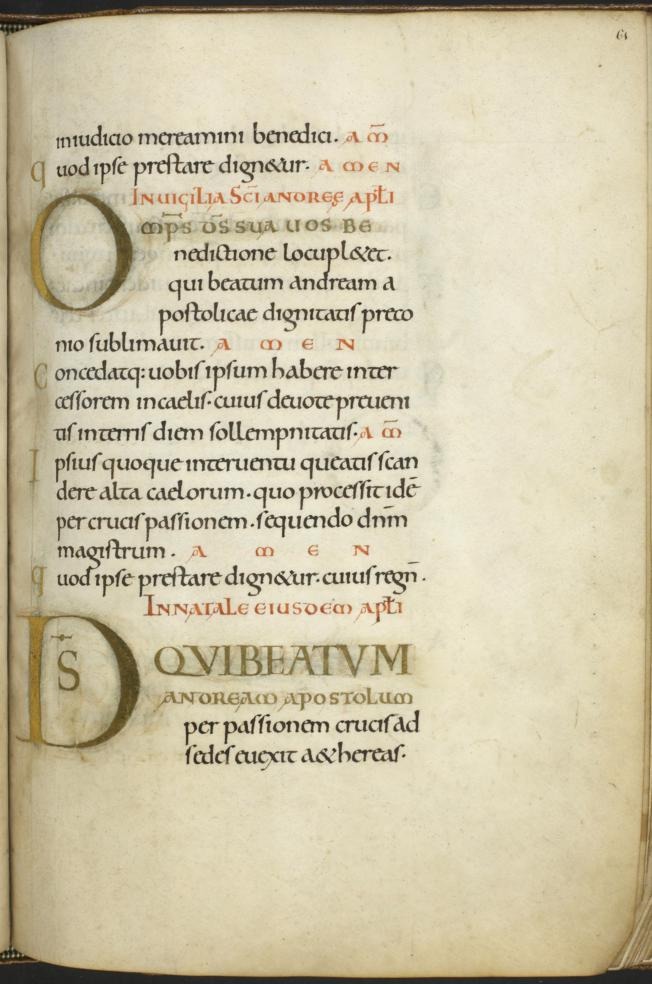 61
iniudicio mereamini benedici. A M̄
quod ipse prestare dign&ur. A M E N
IN UIGILIA SC̄I ANDREĘ APŁI
OMP̄S D̄S SUA UOS BE
nedictione locupl&et.
qui beatum andream a
postolicae dignitatis preco
nio sublimauit. A M E N
Concedatq: uobis ipsum habere inter
cessorem incaelis. cuius deuote preueni
tis interris diem sollempnitatis. A M̄
Ipsius quoque interuentu queatis scan
dere alta caelorum. quo processit idē
per crucis passionem. sequendo dn̄m
magistrum. A M E N
quod ipse prestare dign&ur. cuius regn̄.
IN NATALE EIUSDEM APŁI
D̄S QVI BEATVM
ANDREAM APOSTOLUM
per passionem crucis ad
sedes euexit a&hereas.